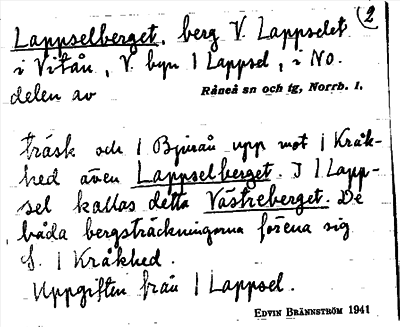 2
Lappselberget, berg V. Lappselet
i Vitån, V. byn | Lappsel, i No.
delen av Råneå sn och tg, Norrb. l.
träsk och | Bjurån upp mot | Kråk-
hed även Lappselberget. I | Lapp-
sel kallas detta Västreberget. De
båda bergsträckningarna förena sig
S. | Kråkhed.
Uppgiften från | Lappsel.
EDVIN BRÄNNSTRÖM 1941